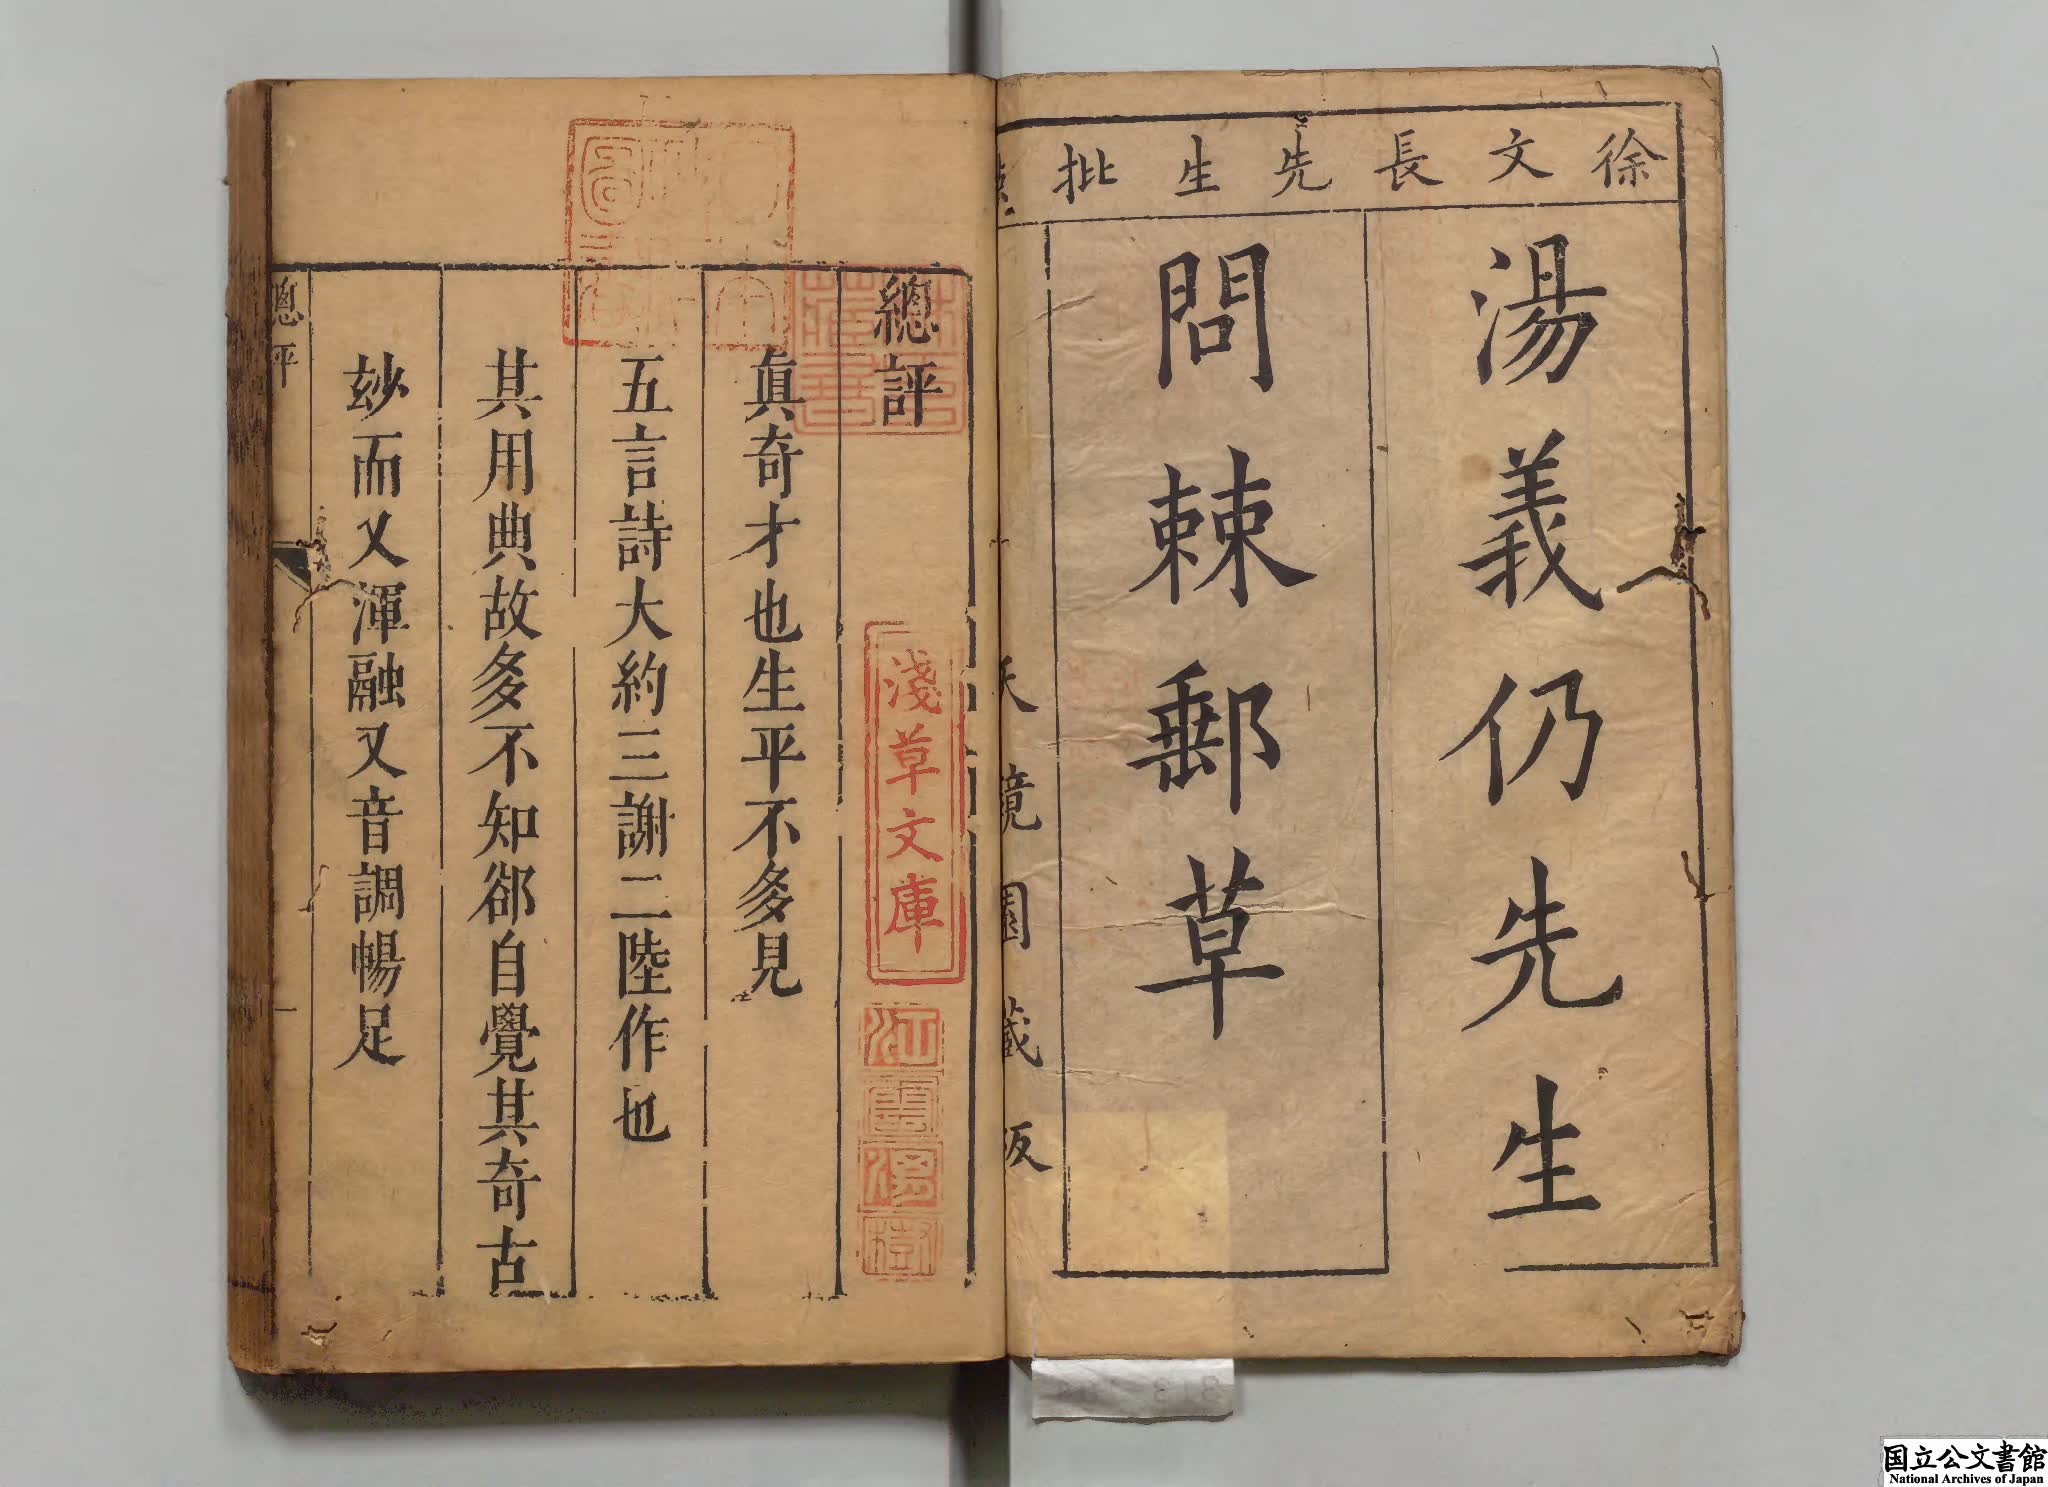 徐文長先生批
湯義仍先生
問棘郵草
天鏡園藏板
總評
眞奇才也生平不多見
五言詩大約三謝二陸作也
其用典故多不知郤自覺其奇古
玅而又渾融又音調暢足
總平
一
淺草文庫
林氏藏書
江雲渭樹
国立公文書館
National Archives of Japan